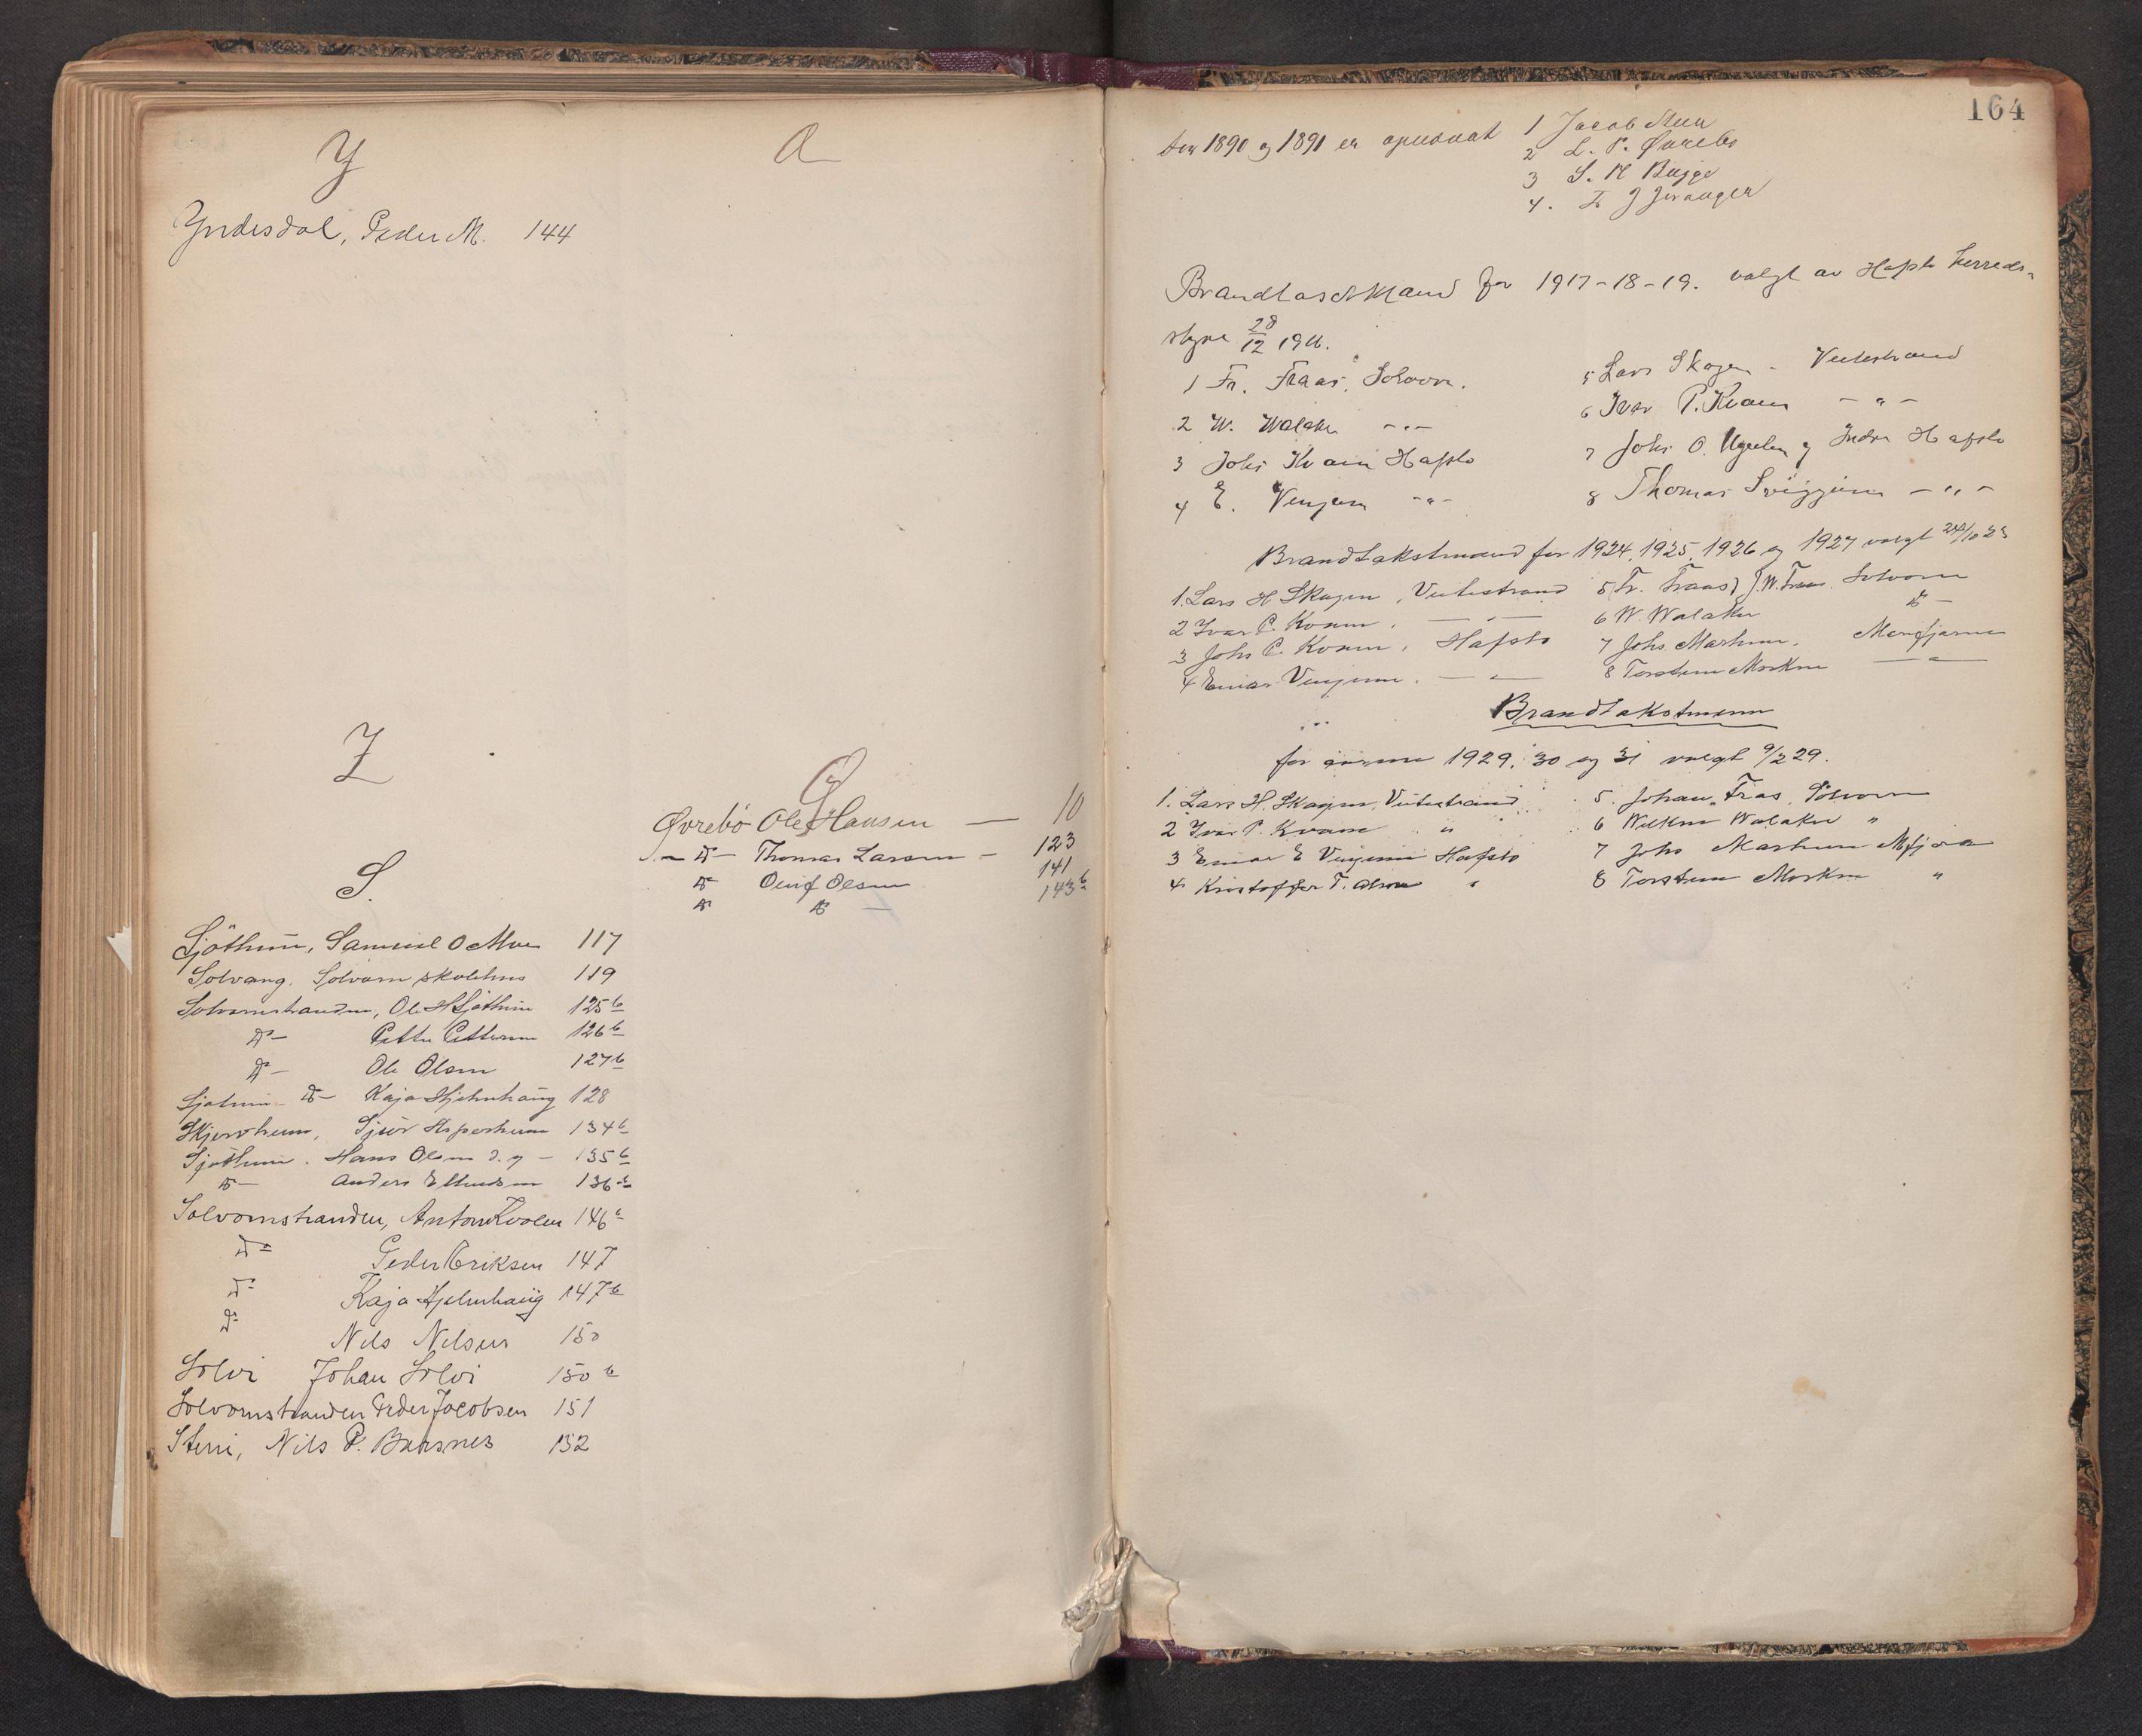 Y
Yndesdal, Peder M. 144
Z
S.
Sjøthun, Samuel O Moe 117
Solvang. Solvorn skolehus 119
Solvornstranden, Ole H Sjøthun 125b
do — Petter Pettersen 126b
do — Ole Olsen 127b
do — Kaja Hjelmhaug 128
Skjervheim, Sjur 134b
Sjøthun. Hans Olsen d.y — 135b
do — Anders Ellendsen 136b
Solvornstranden, Anton Kvalen 146b
do Peder Eriksen 147
do Kaja Hjelmhaug 147b
do Nils Nilsen 150
Solvi Johan Solvi 150b
Solvornstranden Peder Jacobsen 151
Steri, Nils P. Barsnes 152
Ø
Øvrebø Ole Hansen — 10
— do — Thomas Larsen — 123
do Oluf Olsen 141
do do — 143b
164
1890 og 1891 er opnævnt 1 Jacob Moen
2 L. P. Øvrebø
3 S. M Bugge
4.
Brandtakstmænd for 1917-18-19. valgt av Hafslo herreds-
styre 28/12 1916.
1 Fr. Fraas, Solvorn.
2 W. Walaker —"—
3 Johs Kvam Hafslo
4 E. Venjum —"—
5 Lars Skagen. Veitestrand
6 Ivar P. Kvam —"—
7 Johs O. Ugulen Indre Hafslo
8 Thomas —"—
Brandtakstmænd for 1924, 1925, 1926 og 1927 valgt 24/10 23
1. Lars H Skagen, Veitestrand
2 Ivar P. Kvam, —"—
3 Johs P. Kvam, Hafslo
4 Einar Venjum. —"—
5 Fr. Fraas) J. W. Fraas. Solvorn
6 W. Walaker do —
7 Johs. Marheim, Marifjæren
8 Torstein Morken —"—
Brandtakstmenn
for årene 1929, 30 og 31 valgt 9/2 29.
1. Lars H. Skagen, Veitestrand
2 Ivar P. Kvam "
3 Einar E Venjum Hafslo
4 Kristoffer T. Alme "
5. Johan Fras, Solvorn
6 Wilhelm Walaker "
7 Johs Marheim Mfjøra
8 Torstein Morken "